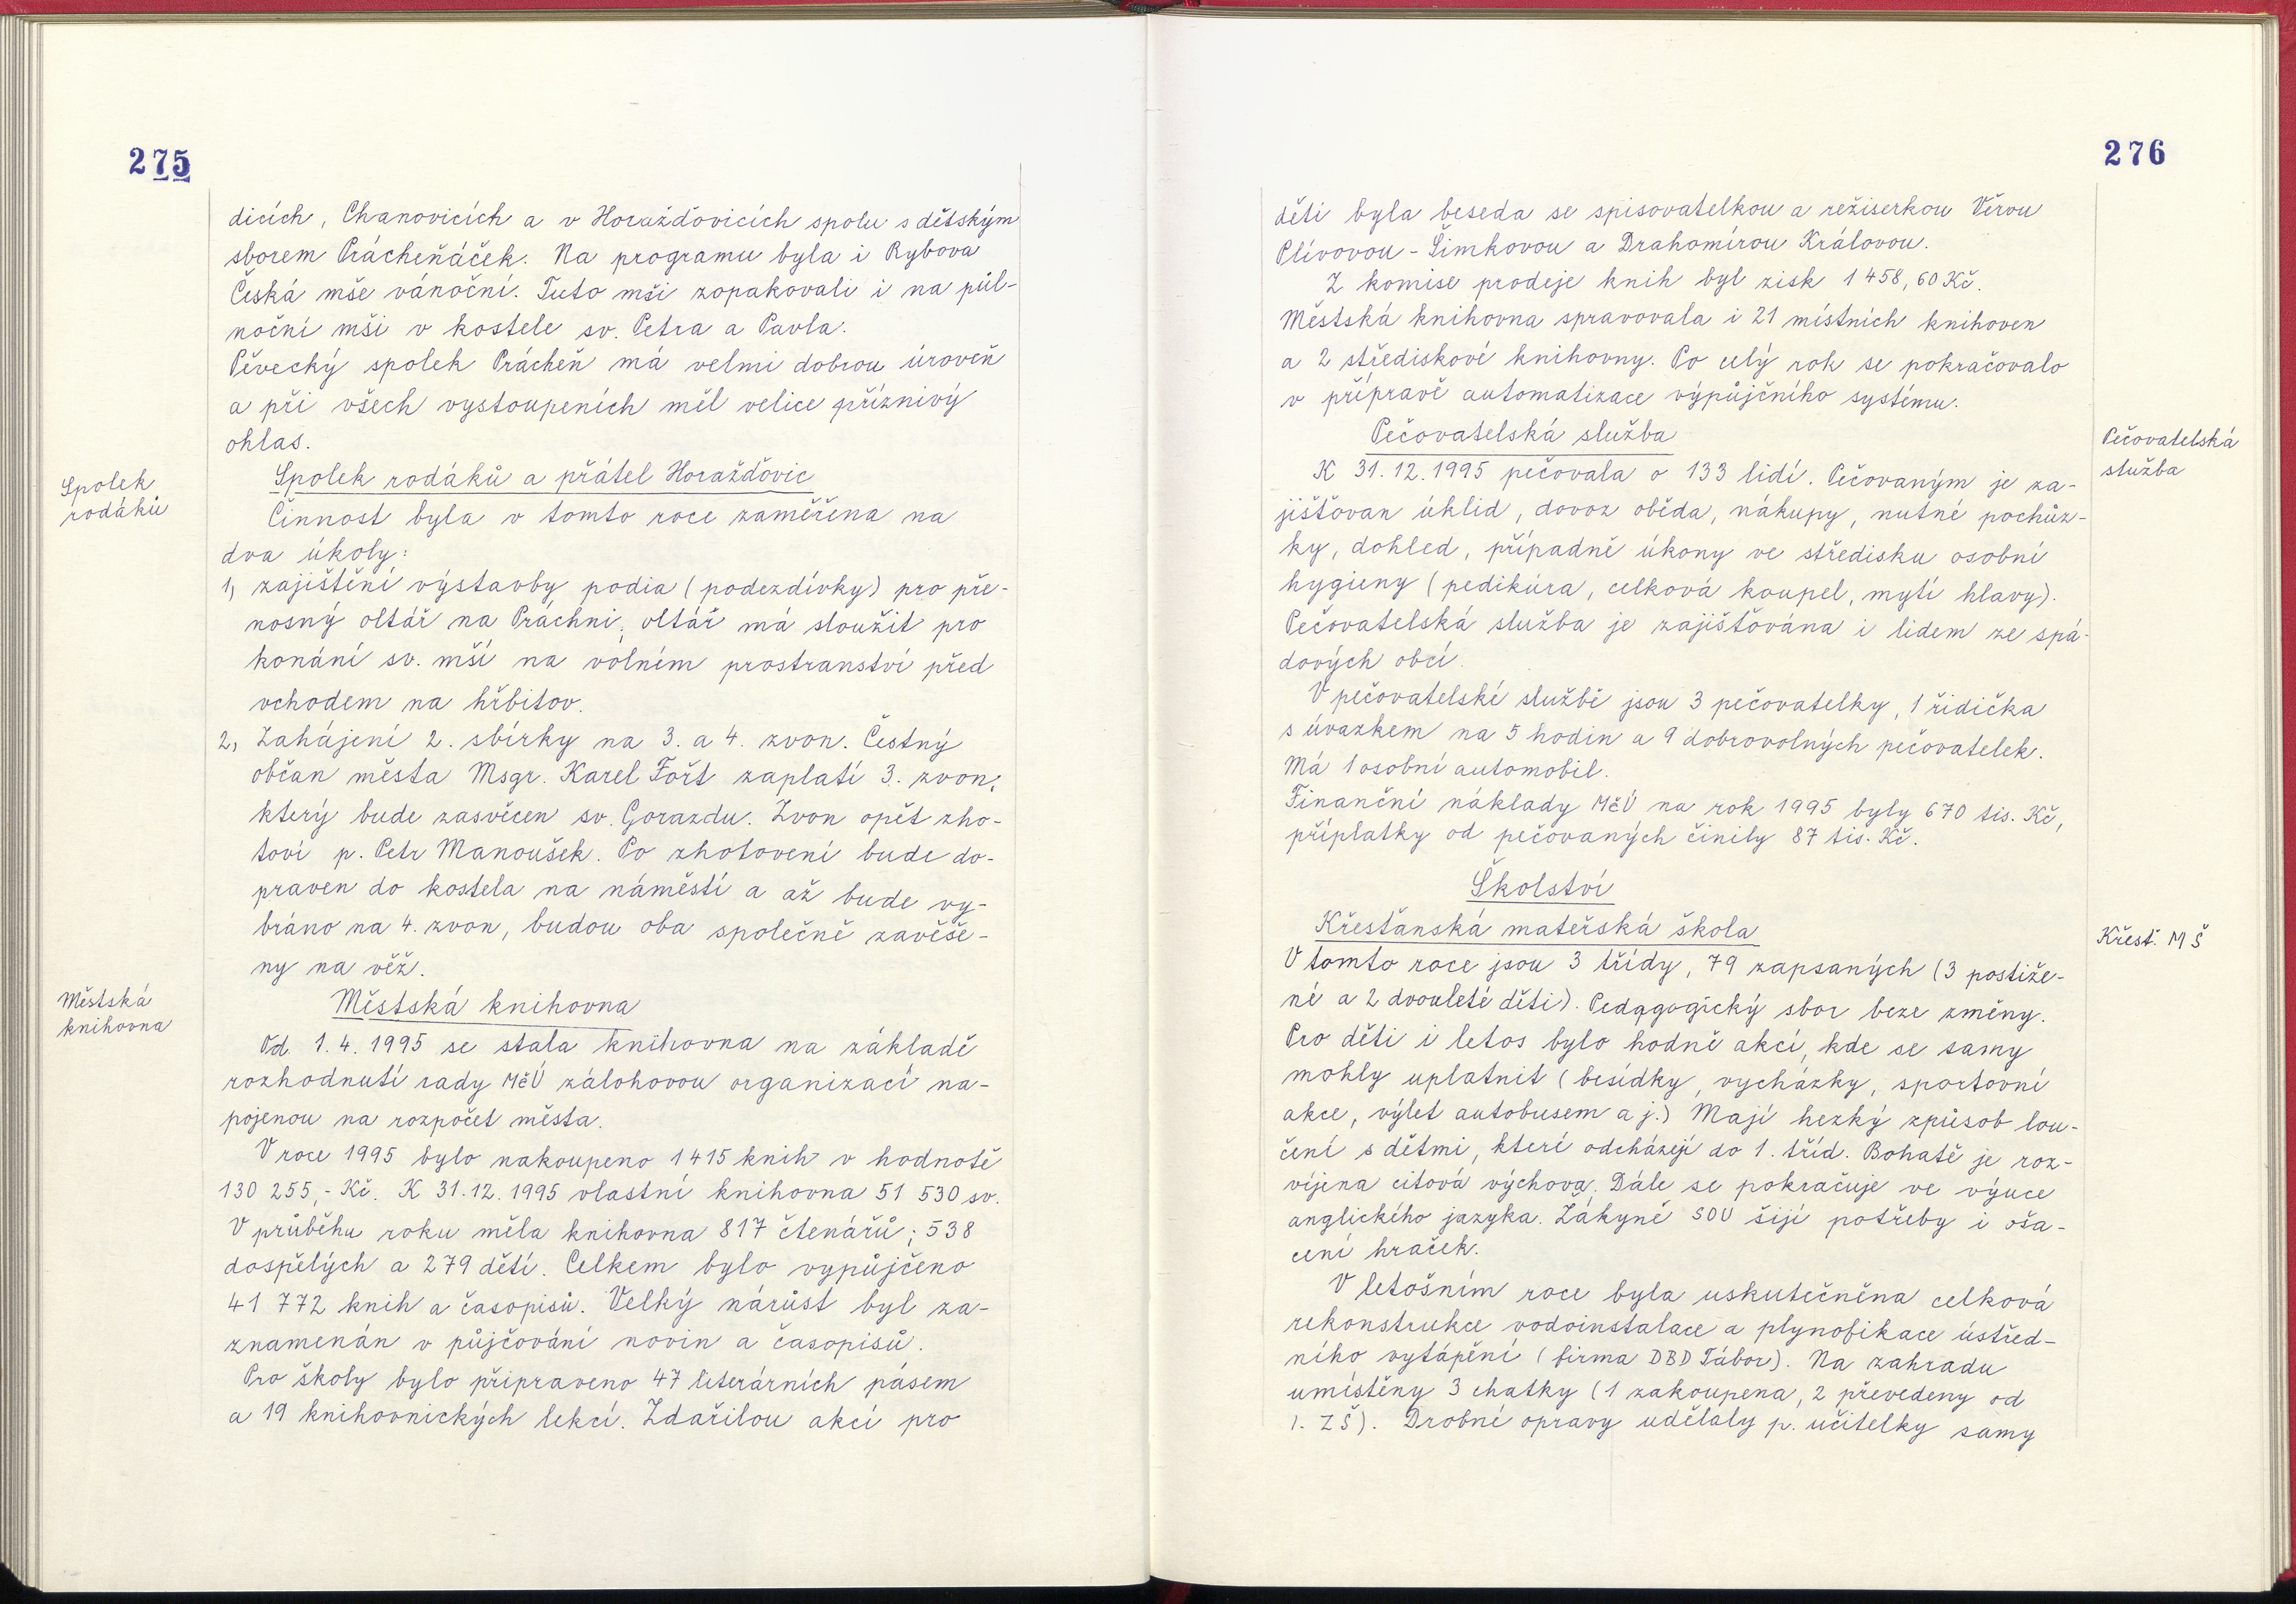 275
dicích, Chanovicích a v Horažďovicích spolu s dětským
sborem Prácheňáček. Na programu byla i Rybova
Česká mše vánoční. Tuto mši zopakovali i na půl-
noční mši v kostele sv. Petra a Pavla.
Pěvecký spolek Prácheň má velmi dobrou úroveň
a při všech vystoupeních měl velice příznivý
ohlas.
Spolek
rodáků
Spolek rodáků a přátel Horažďovic
Činnost byla v tomto roce zaměřena na
dva úkoly:
1, zajištění výstavby podia (podezdívky) pro pře-
nosný oltář na Práchni; oltář má sloužit pro
konání sv. mší na volném prostranství před
vchodem na hřbitov.
2, Zahájení 2. sbírky na 3. a 4. zvon. Čestný
občan města Msgr. Karel Fořt zaplatí 3. zvon,
který bude zasvěcen sv. Gorazdu. Zvon opět zho-
toví p. Petr Manoušek. Po zhotovení bude do-
praven do kostela na náměstí a až bude vy-
bráno na 4. zvon, budou oba společně zavěše-
ny na věž.
Městská
knihovna
Městská knihovna
Od 1.4.1995 se stala knihovna na základě
rozhodnutí rady MěÚ zálohovou organizací na-
pojenou na rozpočet města.
V roce 1995 bylo nakoupeno 1415 knih v hodnotě
130 255,- Kč. K 31.12.1995 vlastní knihovna 51 530 sv.
V průběhu roku měla knihovna 817 čtenářů; 538
dospělých a 279 dětí. Celkem bylo vypůjčeno
41 772 knih a časopisů. Velký nárůst byl za-
znamenán v půjčování novin a časopisů.
Pro školy bylo připraveno 47 literárních pásem
a 19 knihovnických lekcí. Zdařilou akcí pro
276
děti byla beseda se spisovatelkou a režiserkou Věrou
Plívovou - Šimkovou a Drahomírou Královou.
Z komise prodeje knih byl zisk 1 458,60 Kč.
Městská knihovna spravovala i 21 místních knihoven
a 2 střediskové knihovny. Po celý rok se pokračovalo
v přípravě automatizace výpůjčního systému.
Pečovatelská služba
Pečovatelská
služba
K 31.12.1995 pečovala o 133 lidí. Pečovaným je za-
jišťován úklid, dovoz oběda, nákupy, nutné pochůz-
ky, dohled, případně úkony ve středisku osobní
hygieny (pedikúra, celková koupel, mytí hlavy).
Pečovatelská služba je zajišťována i lidem ze spá-
dových obcí.
V pečovatelské službě jsou 3 pečovatelky, 1 řidička
s úvazkem na 5 hodin a 9 dobrovolných pečovatelek.
Má 1 osobní automobil.
Finanční náklady MěÚ na rok 1995 byly 670 tis. Kč,
příplatky od pečovaných činily 87 tis. Kč.
Školství
Křesťanská mateřská škola
Křest. MŠ
V tomto roce jsou 3 třídy, 79 zapsaných (3 postiže-
né a 2 dvouleté děti). Pedagogický sbor beze změny.
Pro děti i letos bylo hodně akcí, kde se samy
mohly uplatnit (besídky, vycházky, sportovní
akce, výlet autobusem a j.) Mají hezký způsob lou-
čení s dětmi, které odcházejí do 1. tříd. Bohatě je roz-
víjena citová výchova. Dále se pokračuje ve výuce
anglického jazyka. Žákyně SOU šijí potřeby i oša-
cení hraček.
V letošním roce byla uskutečněna celková
rekonstrukce vodoinstalace a plynofikace ústřed-
ního vytápění (firma DBD Tábor). Na zahradu
umístěny 3 chatky (1 zakoupena, 2 převedeny od
1. ZŠ). Drobné opravy udělaly p. učitelky samy